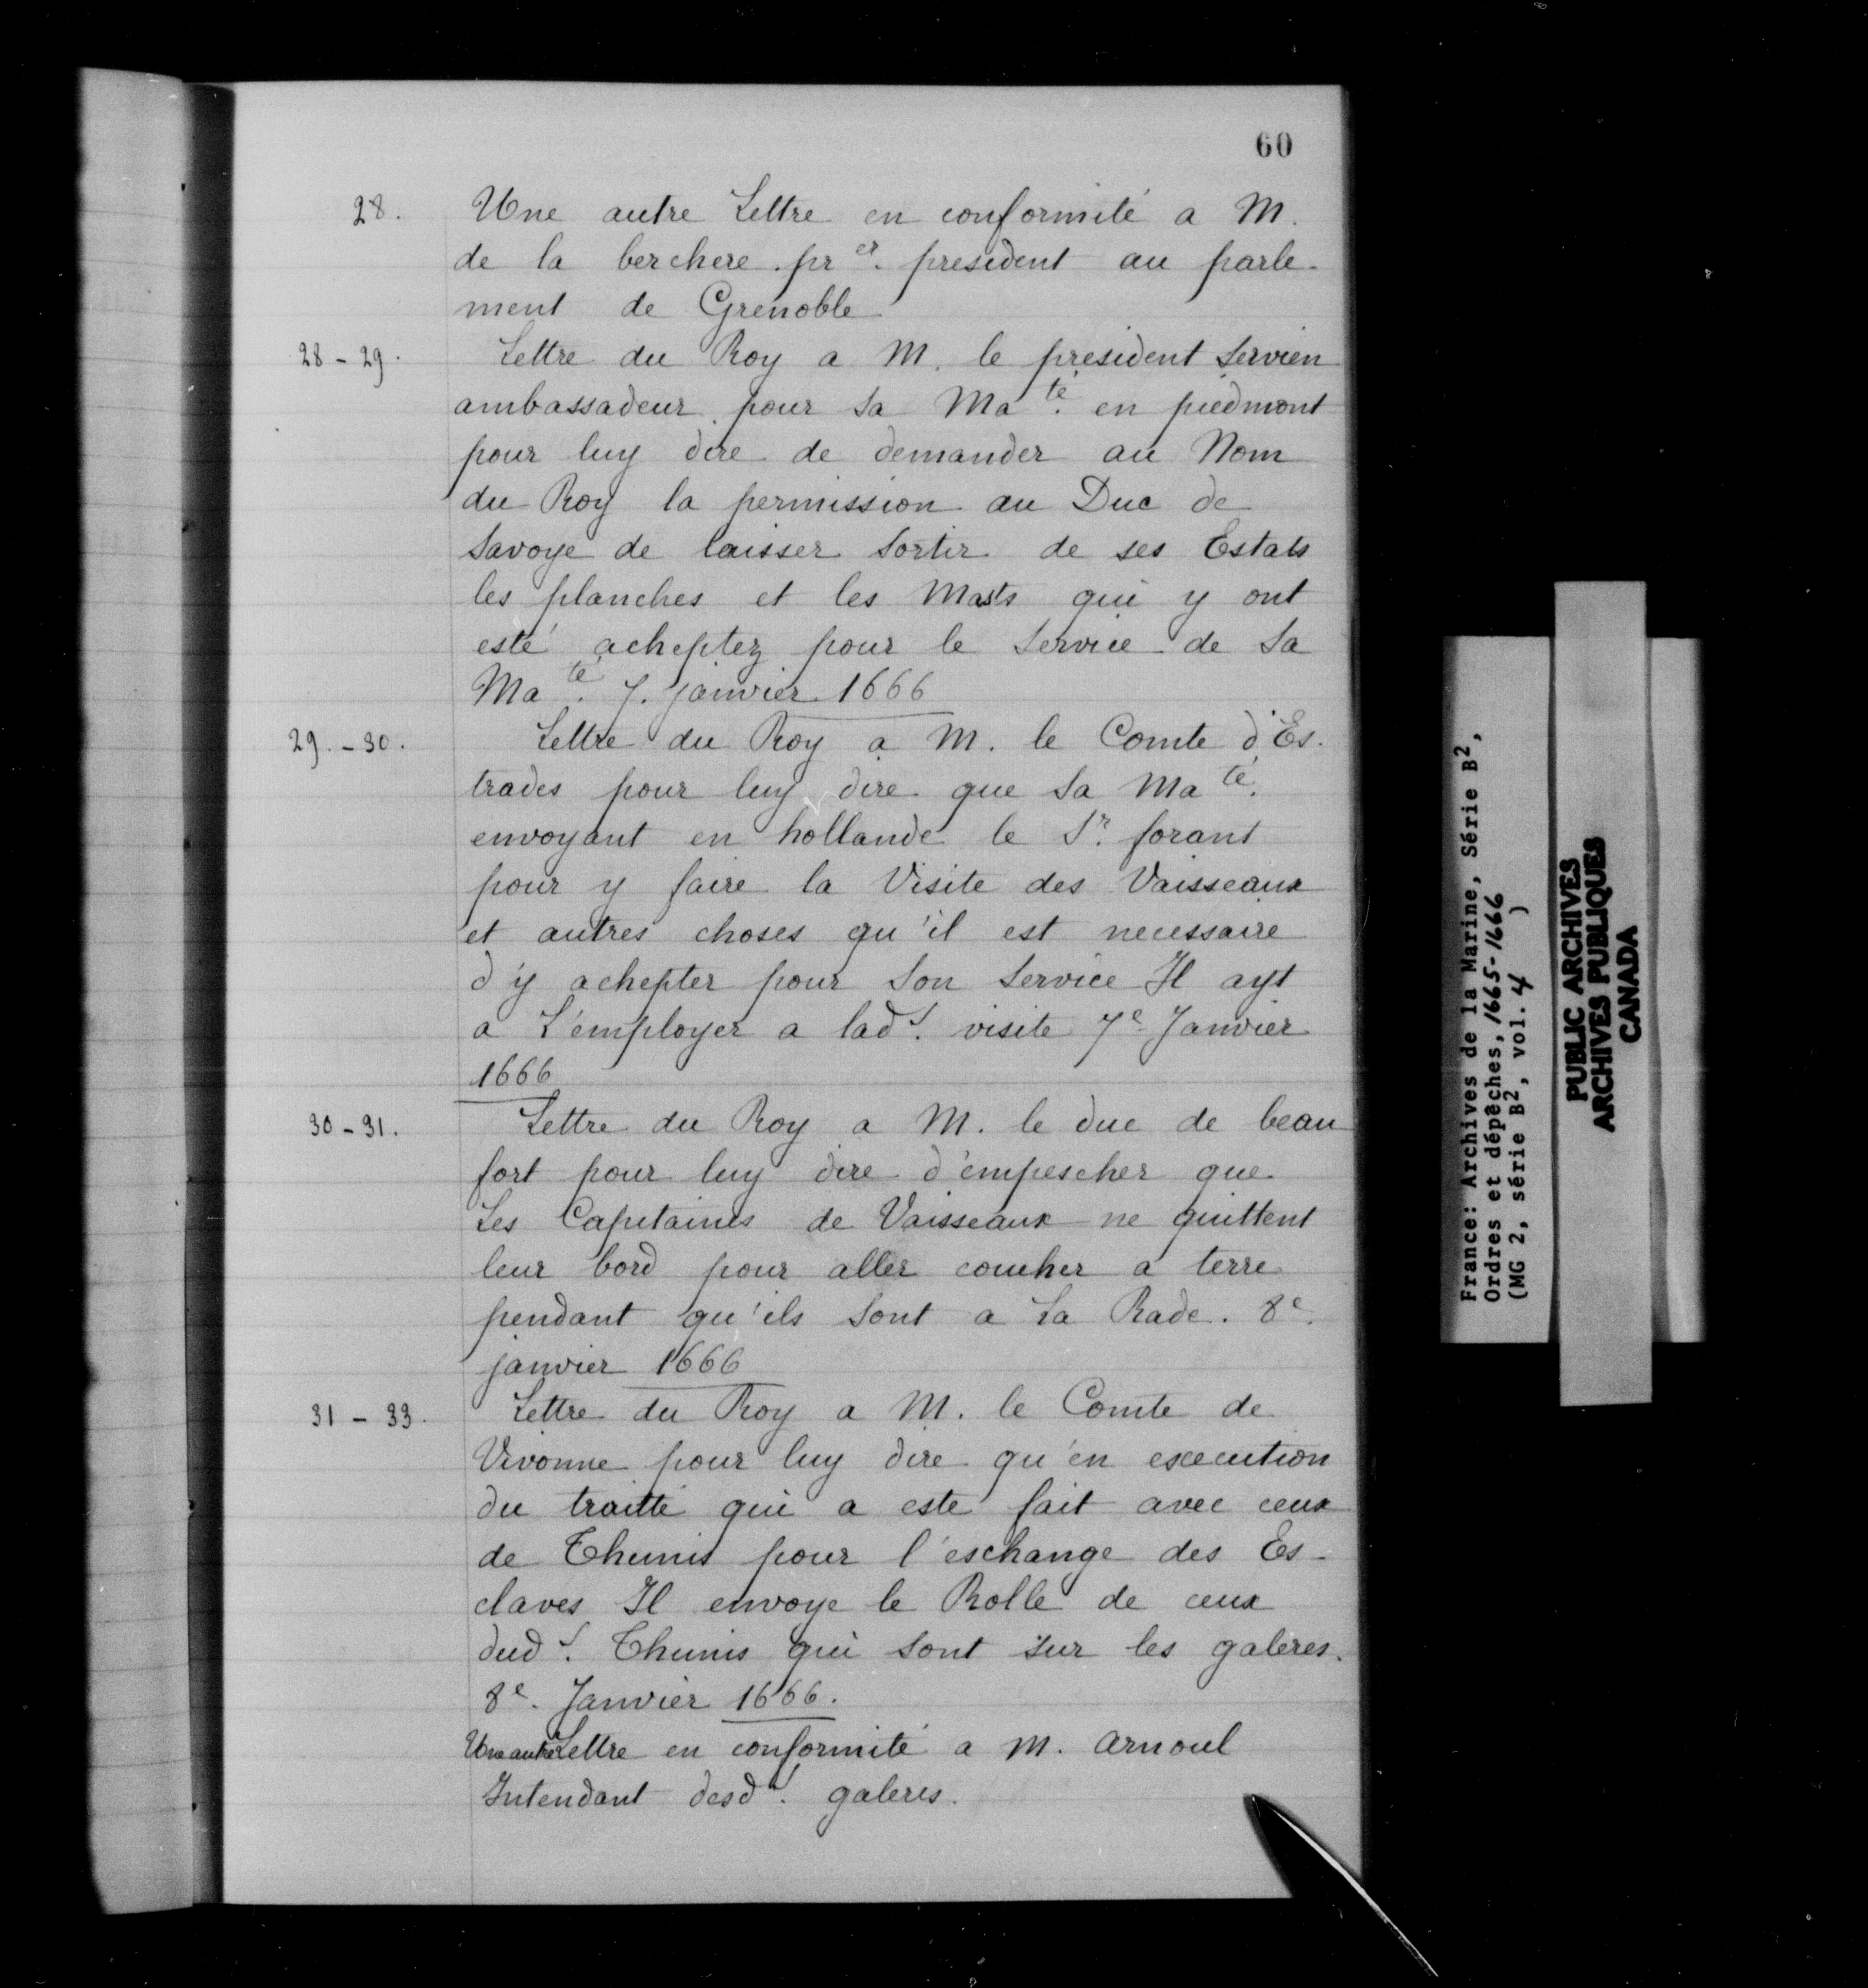 60
28. Une autre Lettre en conformité a M.
de la berchere pr er. president au parle-
ment de Grenoble
28 - 29. Lettre du Roy a M. le president Servien
ambassadeur pour Sa Ma té. en piedmont
pour luy dire de demander au Nom
du Roy la permission au Duc de
Savoye de laisser sortir de ses Estats
les planches et les Masts qui y ont
esté acheptez pour le Service de Sa
Ma té. 7. janvier 1666
29. - 30. Lettre du Roy a M. le Comte d'Es-
trades pour luy dire que Sa Ma té.
envoyant en hollande le Sr. forant
pour y faire la Visite des Vaisseaux
et autres choses qu'il est necessaire
d'y achepter pour Son Service Il ayt
a L'employer a lad t. visite 7e Janvier
1666
30 - 31. Lettre du Roy a M. le duc de beau
fort pour luy dire d'empescher que
Les Capitaines de Vaisseaux ne quittent
leur bord pour aller coucher a terre
pendant qu'ils Sont a La Rade. 8e.
janvier 1666
31 - 33. Lettre du Roy a M. le Comte de
Vivonne pour luy dire qu'en execution
du traitté qui a este fait avec ceux
de Thunis pour l'eschange des Es-
claves Il envoye le Rolle de ceux
dud t. Thunis qui sont sur les galeres.
8e. Janvier 1666.
Une autre Lettre en conformité a M. arnoul
Intendant desd t. galeres.
France: Archives de la Marine, Série B2,
Ordres et dépêches, 1665-1666
(MG 2, série B2, vol. 4 )
PUBLIC ARCHIVES
ARCHIVES PUBLIQUES
CANADA